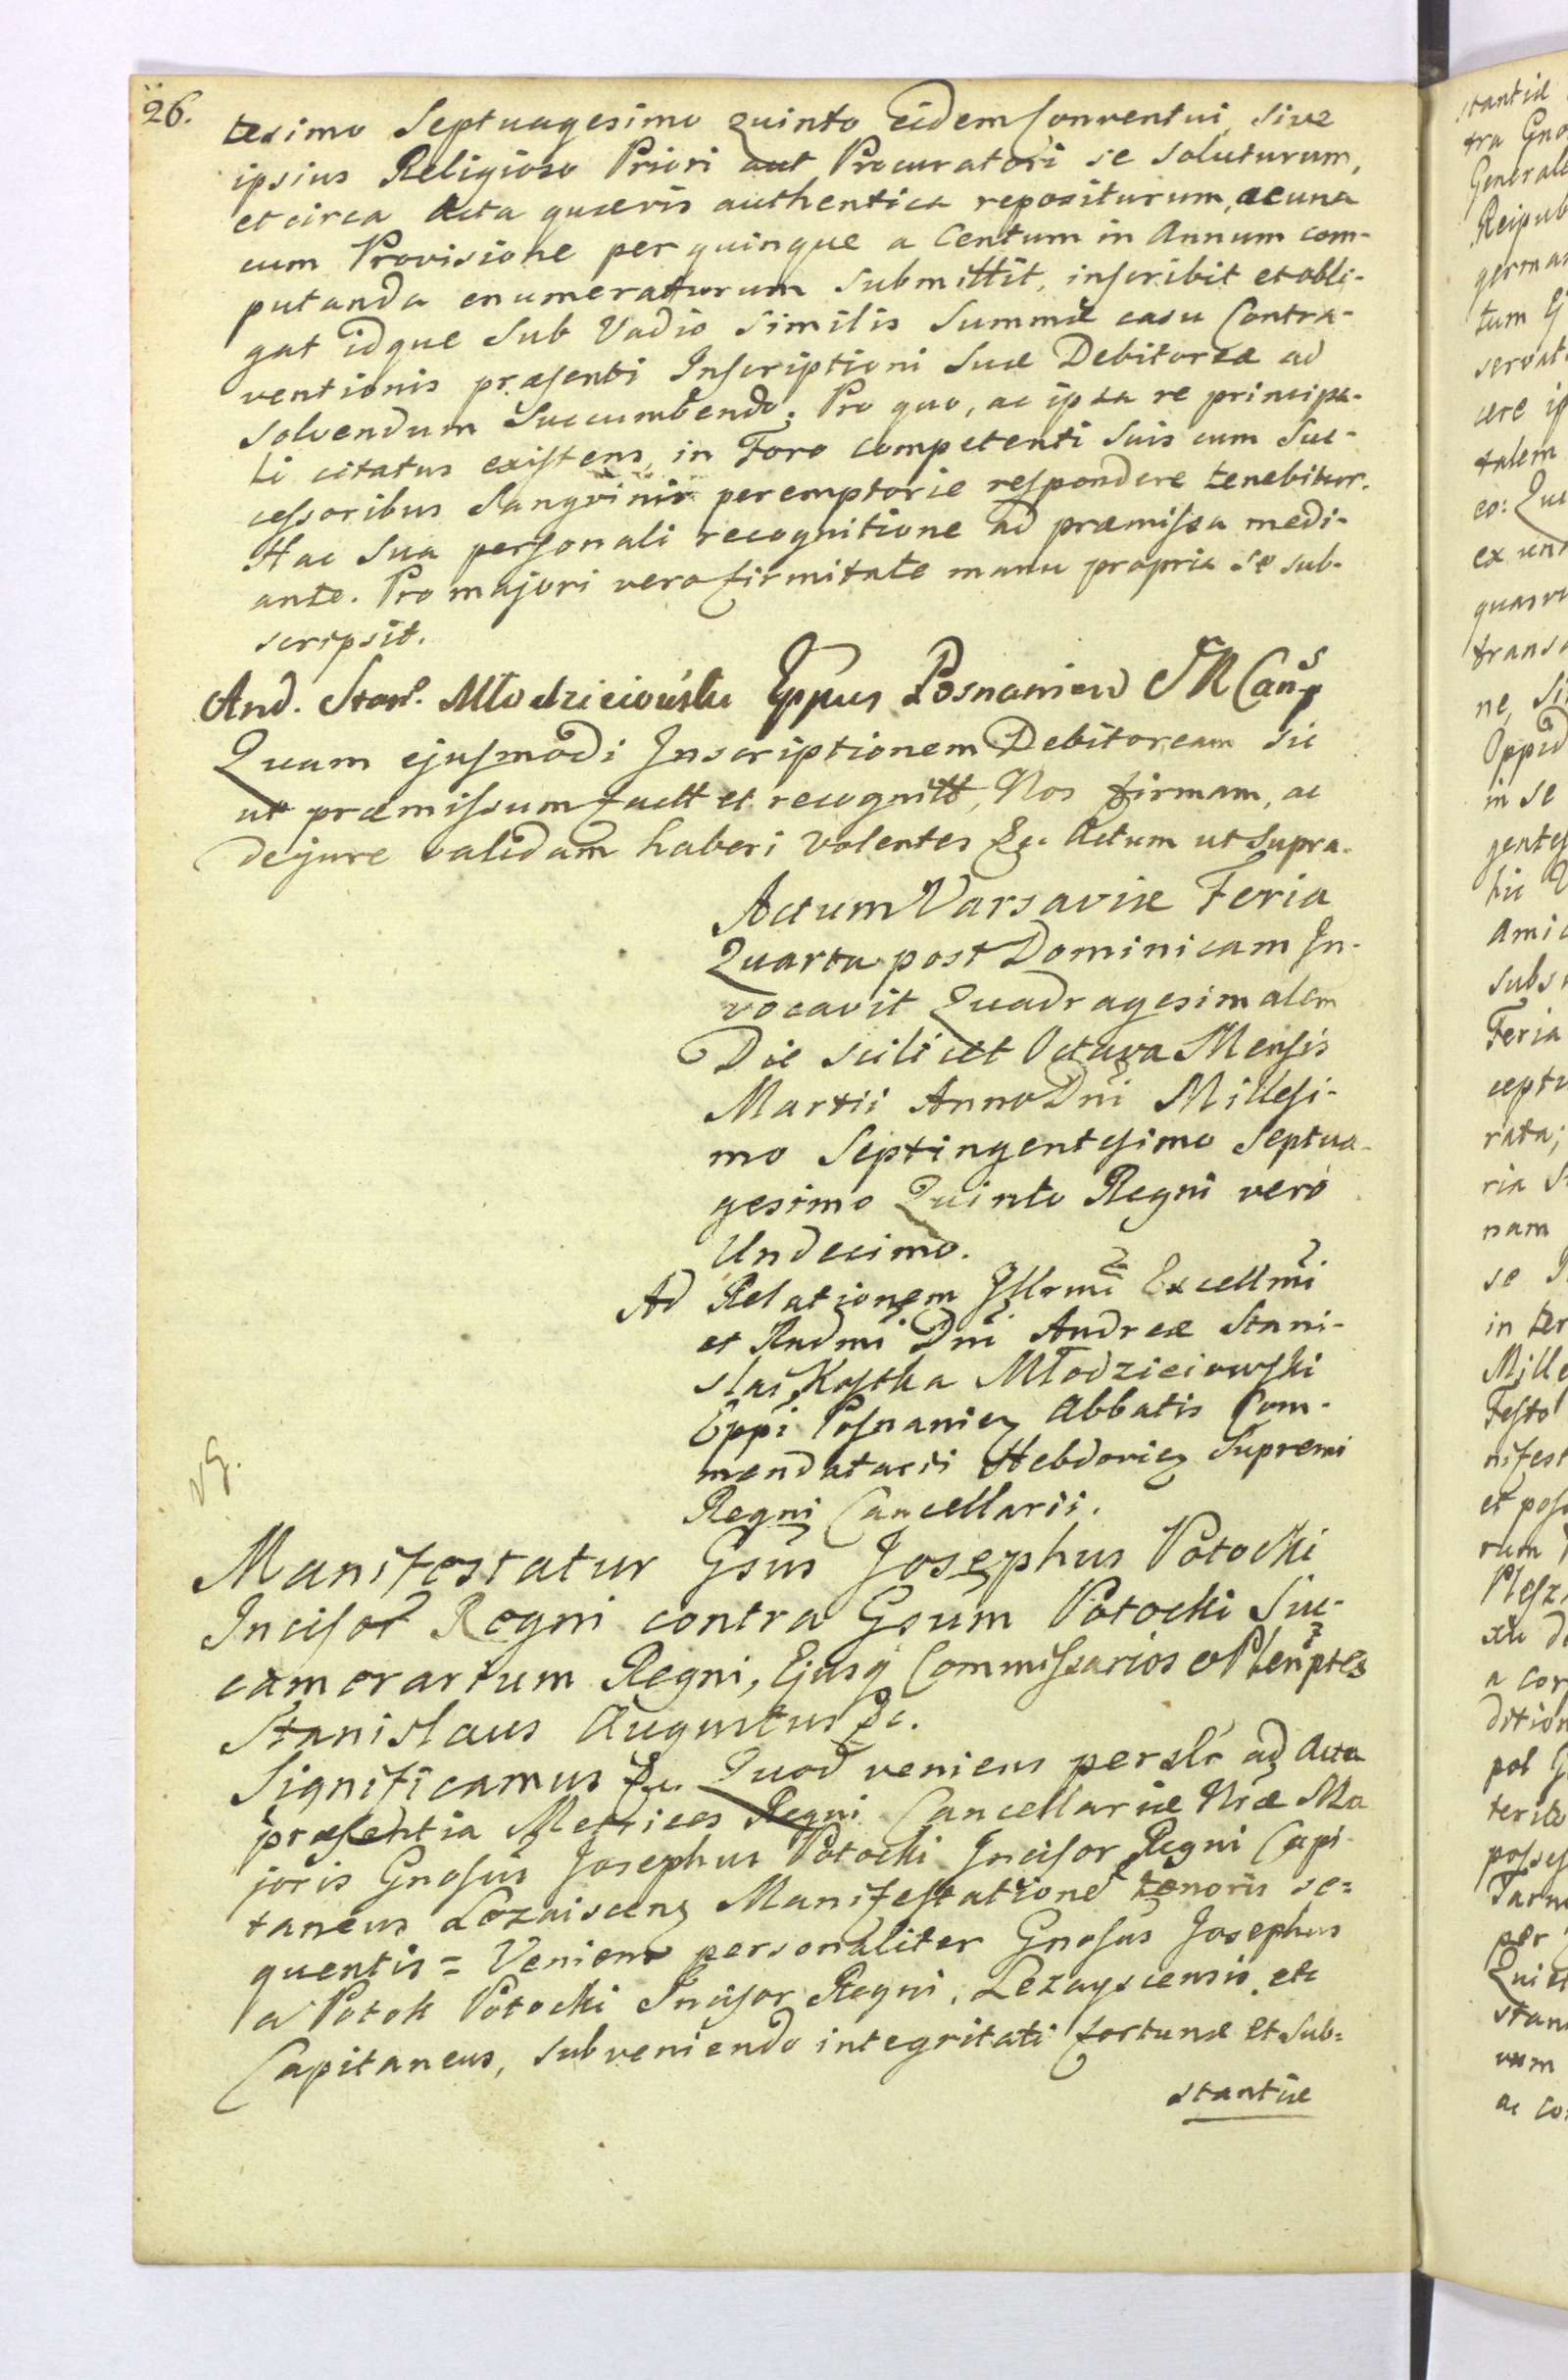 26.
tesimo Septuagesimo quinto eidem Conventui sive
ipsius Religioso Priori aut Procuratori se soluturum,
et circa Acta quævis authentica repositurum, ac una
cum Provisione per quinque a Centum in Annum com-
putanda enumeraturum submittit, inscribit et obli-
gat idque sub Vadio similis Summæ casu Contra-
ventionis præsenti Inscriptioni suæ Debitoreæ ad
solvendum succumbendo; Pro quo, ac ipsa re principa-
li citatus existens, in Foro competenti suis cum Suc-
cessoribus Sangvinis peremptorie respondere tenebitur.
Hac sua personali recognitione ad præmissa medi-
ante. Pro majori vero firmitate manu propria se sub-
scripsit.
And. Stan. Młodzieiowski Eppus Posnanien S R Canp
Quam ejusmodi Inscriptionem Debitoream sic
ut præmissum factt et recognitt, Nos firmam, ac
de jure validam haberi volentes &c. Actum ut supra.
Actum Varsaviæ Feria
Quarta post Dominicam In-
vocavit Quadragesimalem
Die scilicet Octava Mensis
Martii Anno Dni Millesi-
mo Septingentesimo Septua-
gesimo Quinto Regni vero
Undecimo.
Ad Relationem Illrmi Excellmi
et Rndmi Dni Andreæ Stani-
slai Kostka Młodzieiowski
Eppi Posnanien Abbatis Com-
mendatarii Hebdovien Supremi
Regni Cancellarii.
Manifestatur Gsus Josephus Potocki
Incisor Regni contra Gsum Potocki Suc-
camerarium Regni, Ejusq Commissarios et Plenptes
Stanislaus Augustus &c.
Significamus &c. Quod veniens persLr ad Acta
præsentia Metrices Regni Cancellariæ Nræ Ma
joris Gnosus Josephus Potocki Incisor Regni Capi-
taneus Lezaiscens Manifestationē tenoris se=
quentis = Veniens personaliter Gnosus Josephus
a Potok Potocki Incisor Regni, Lezayscensis etc
Capitaneus, subveniendo integritati fortunæ et sub=
stantiæ